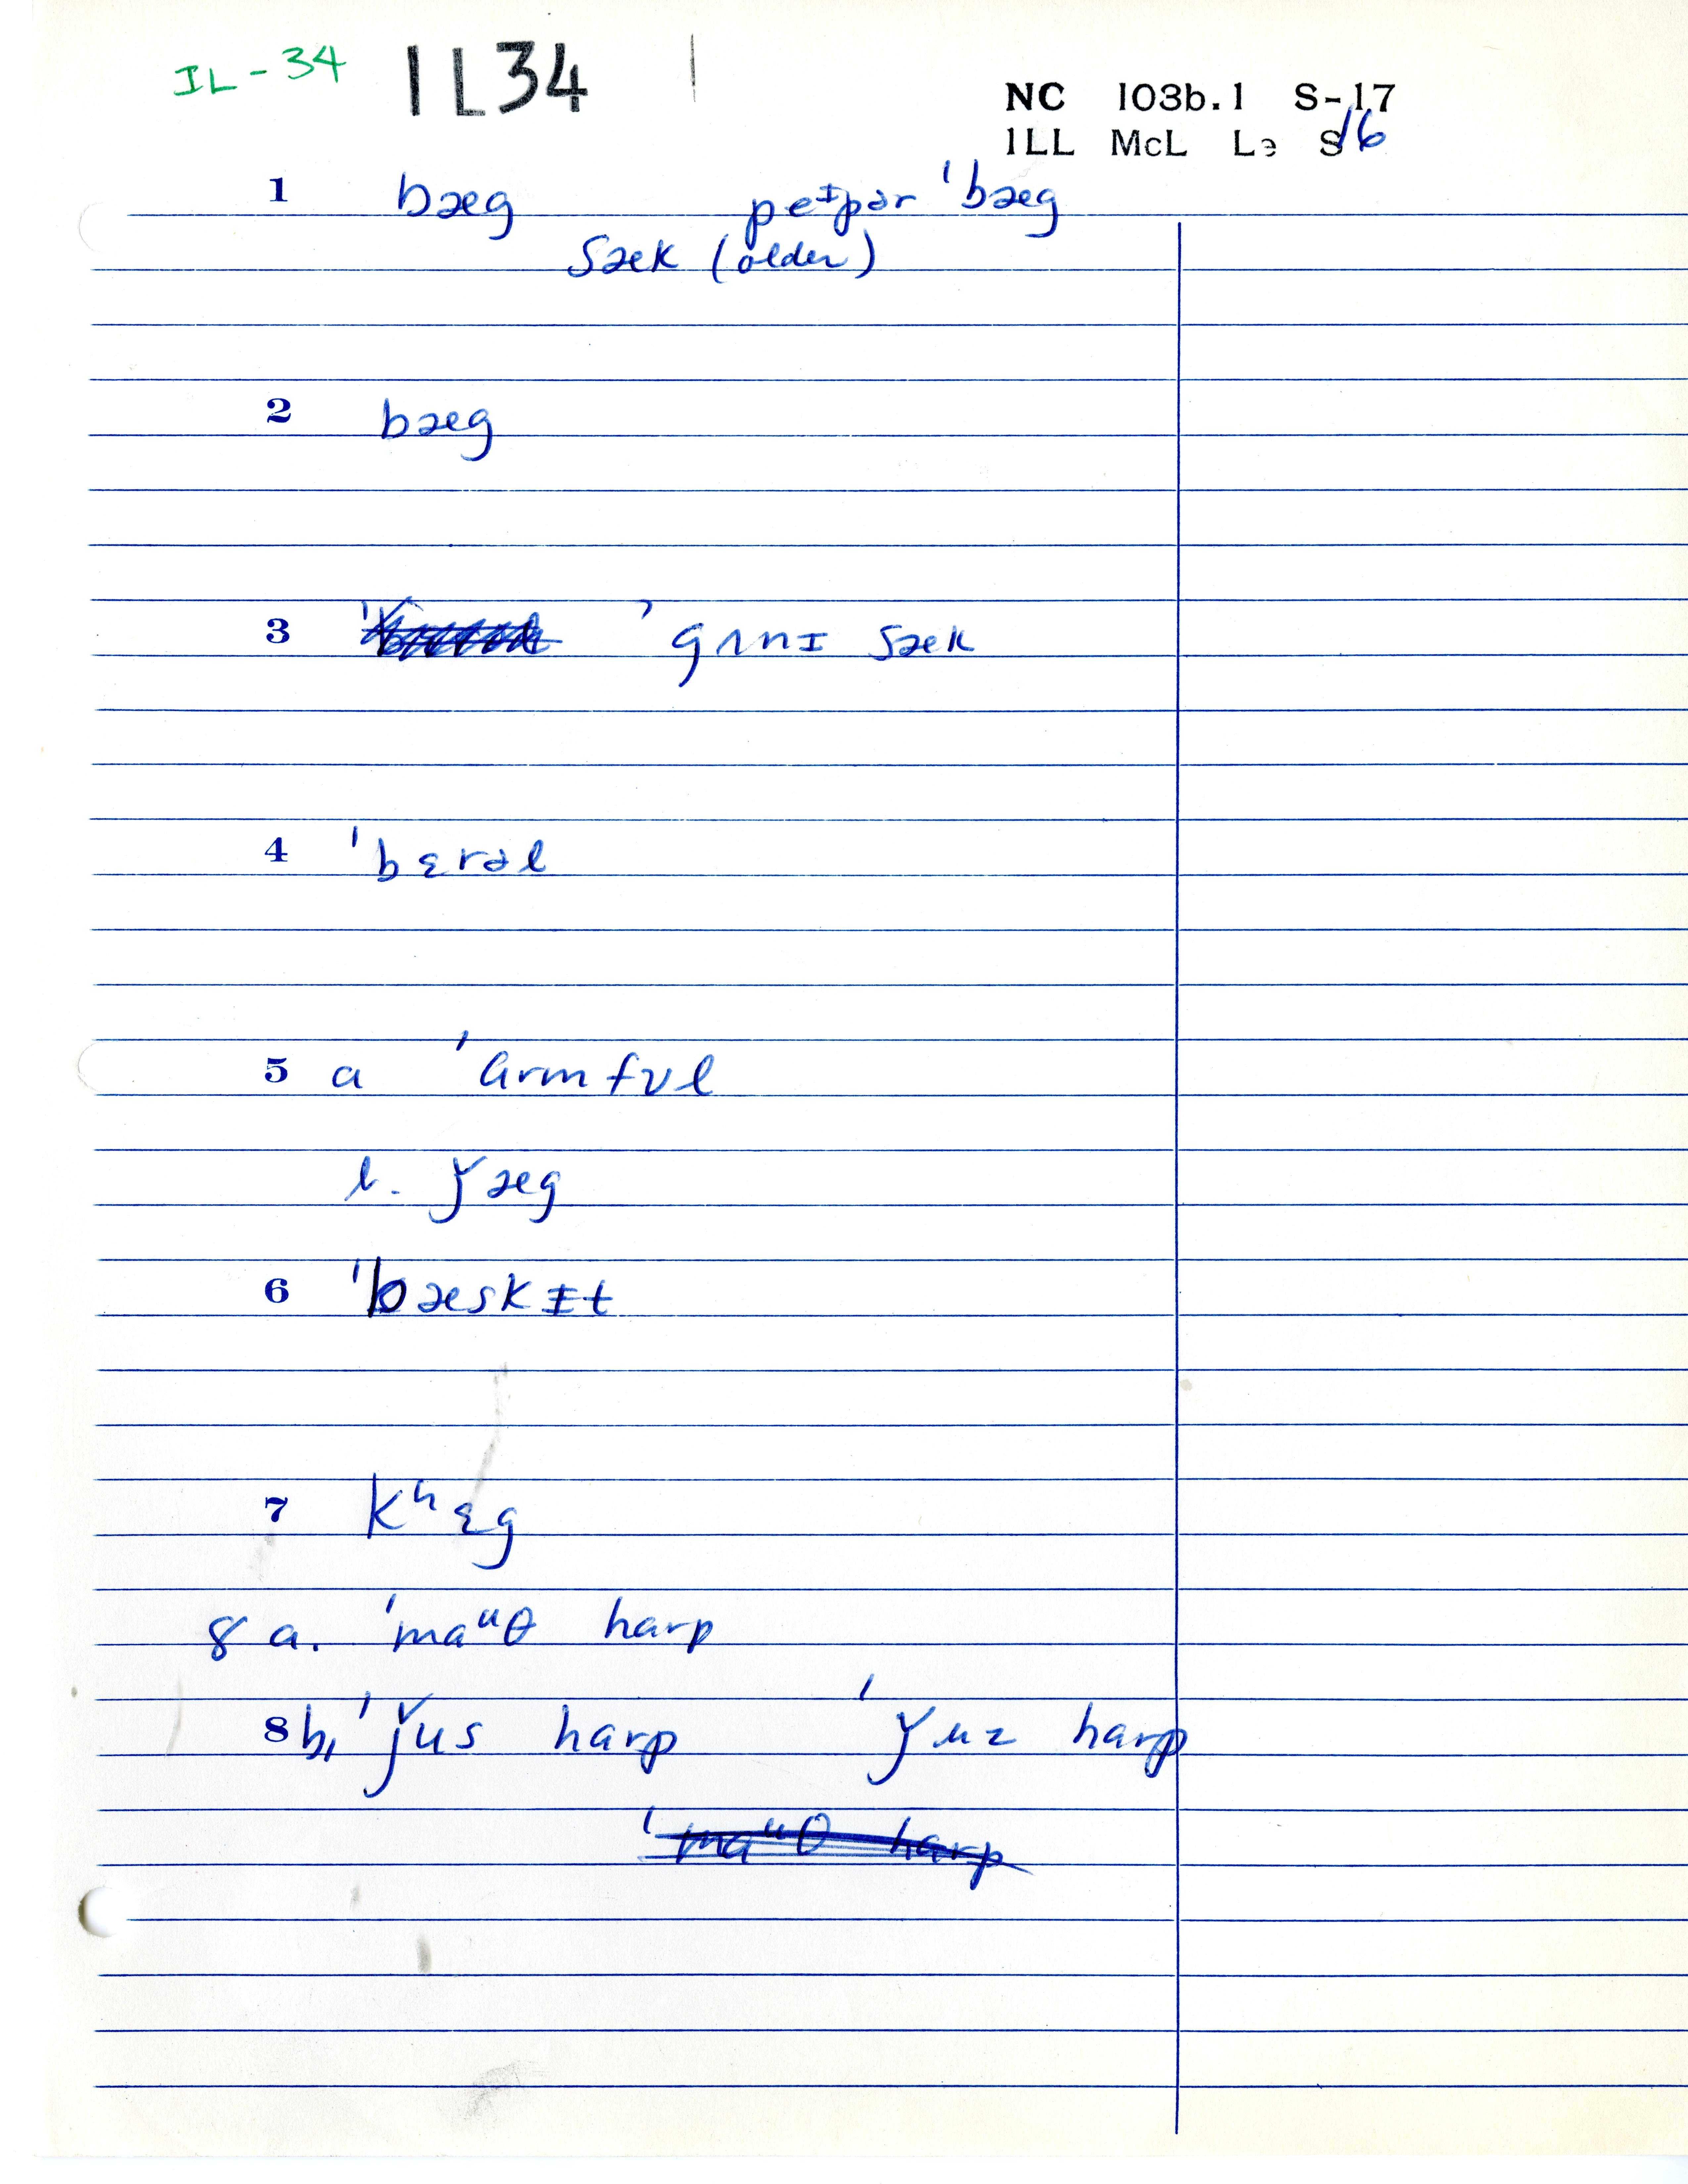 IL-34 IL34
NC 103b.1 S-17
ILL McL Lə S16
1 bæg peɪpər ˈbæg
sæk (older)
2 bæg
3 ˈgʌnɪ sæk
4 ˈbɛrəl
5 a ˈɑrmfʊl
b. ǰæg
6 ˈbæskɪt
7 kʰɛg
8 a. ˈmaᵘθ harp
8 b. ˈǰus harp ˈǰuz harp
ˈmaᵘθ harp